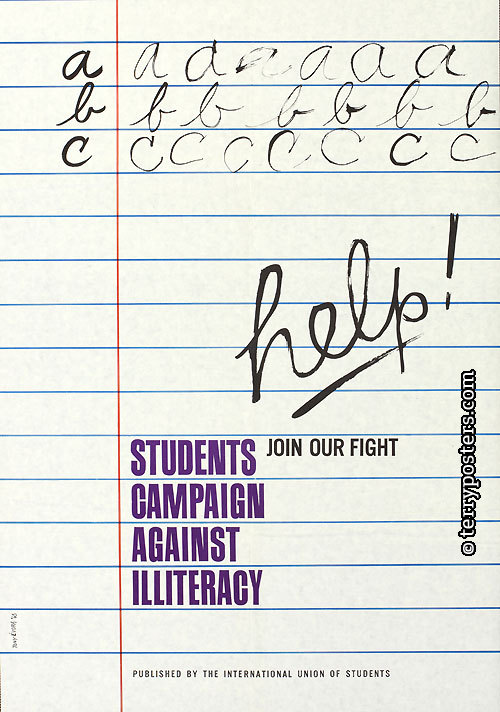 a a a a a a a
b b b b b b b
c c c c c c c c
help!
JOIN OUR FIGHT
STUDENTS
CAMPAIGN
AGAINST
ILLITERACY
PUBLISHED BY THE INTERNATIONAL UNION OF STUDENTS
© terryposters.com